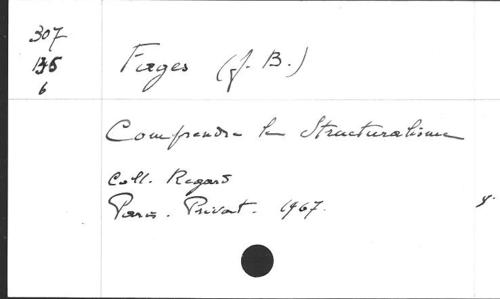 307
6
Fages (J. B.)
Comprendre le Structuralisme
Coll. Regard
Paris. Privat. 1967.